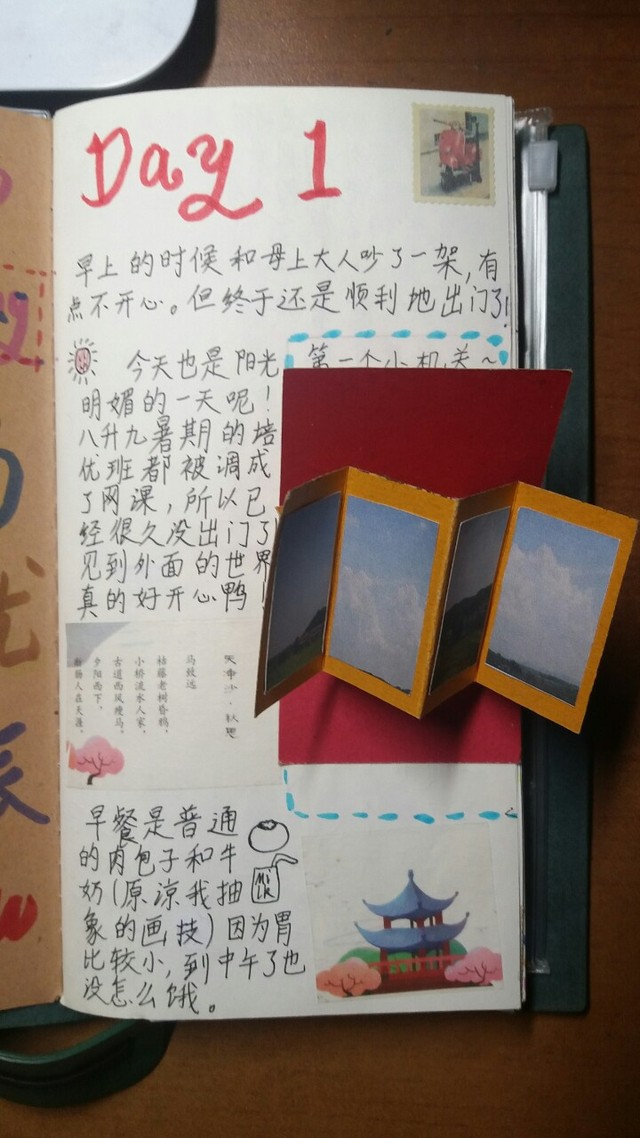 Day 1
早上的时候和母上大人吵了一架，有
点不开心。但终于还是顺利地出门了！
今天也是阳光
明媚的一天呢！
八升九暑期的培
优班都被调成
了网课，所以已
经很久没出门了
见到外面的世界
真的好开心鸭！
第一个小机关~
天净沙·秋思
马致远
枯藤老树昏鸦，
小桥流水人家，
古道西风瘦马。
夕阳西下，
断肠人在天涯。
早餐是普通
的肉包子和牛
奶（原凉我抽
象的画技）因为胃
比较小，到中午了也
没怎么饿。
MiLK